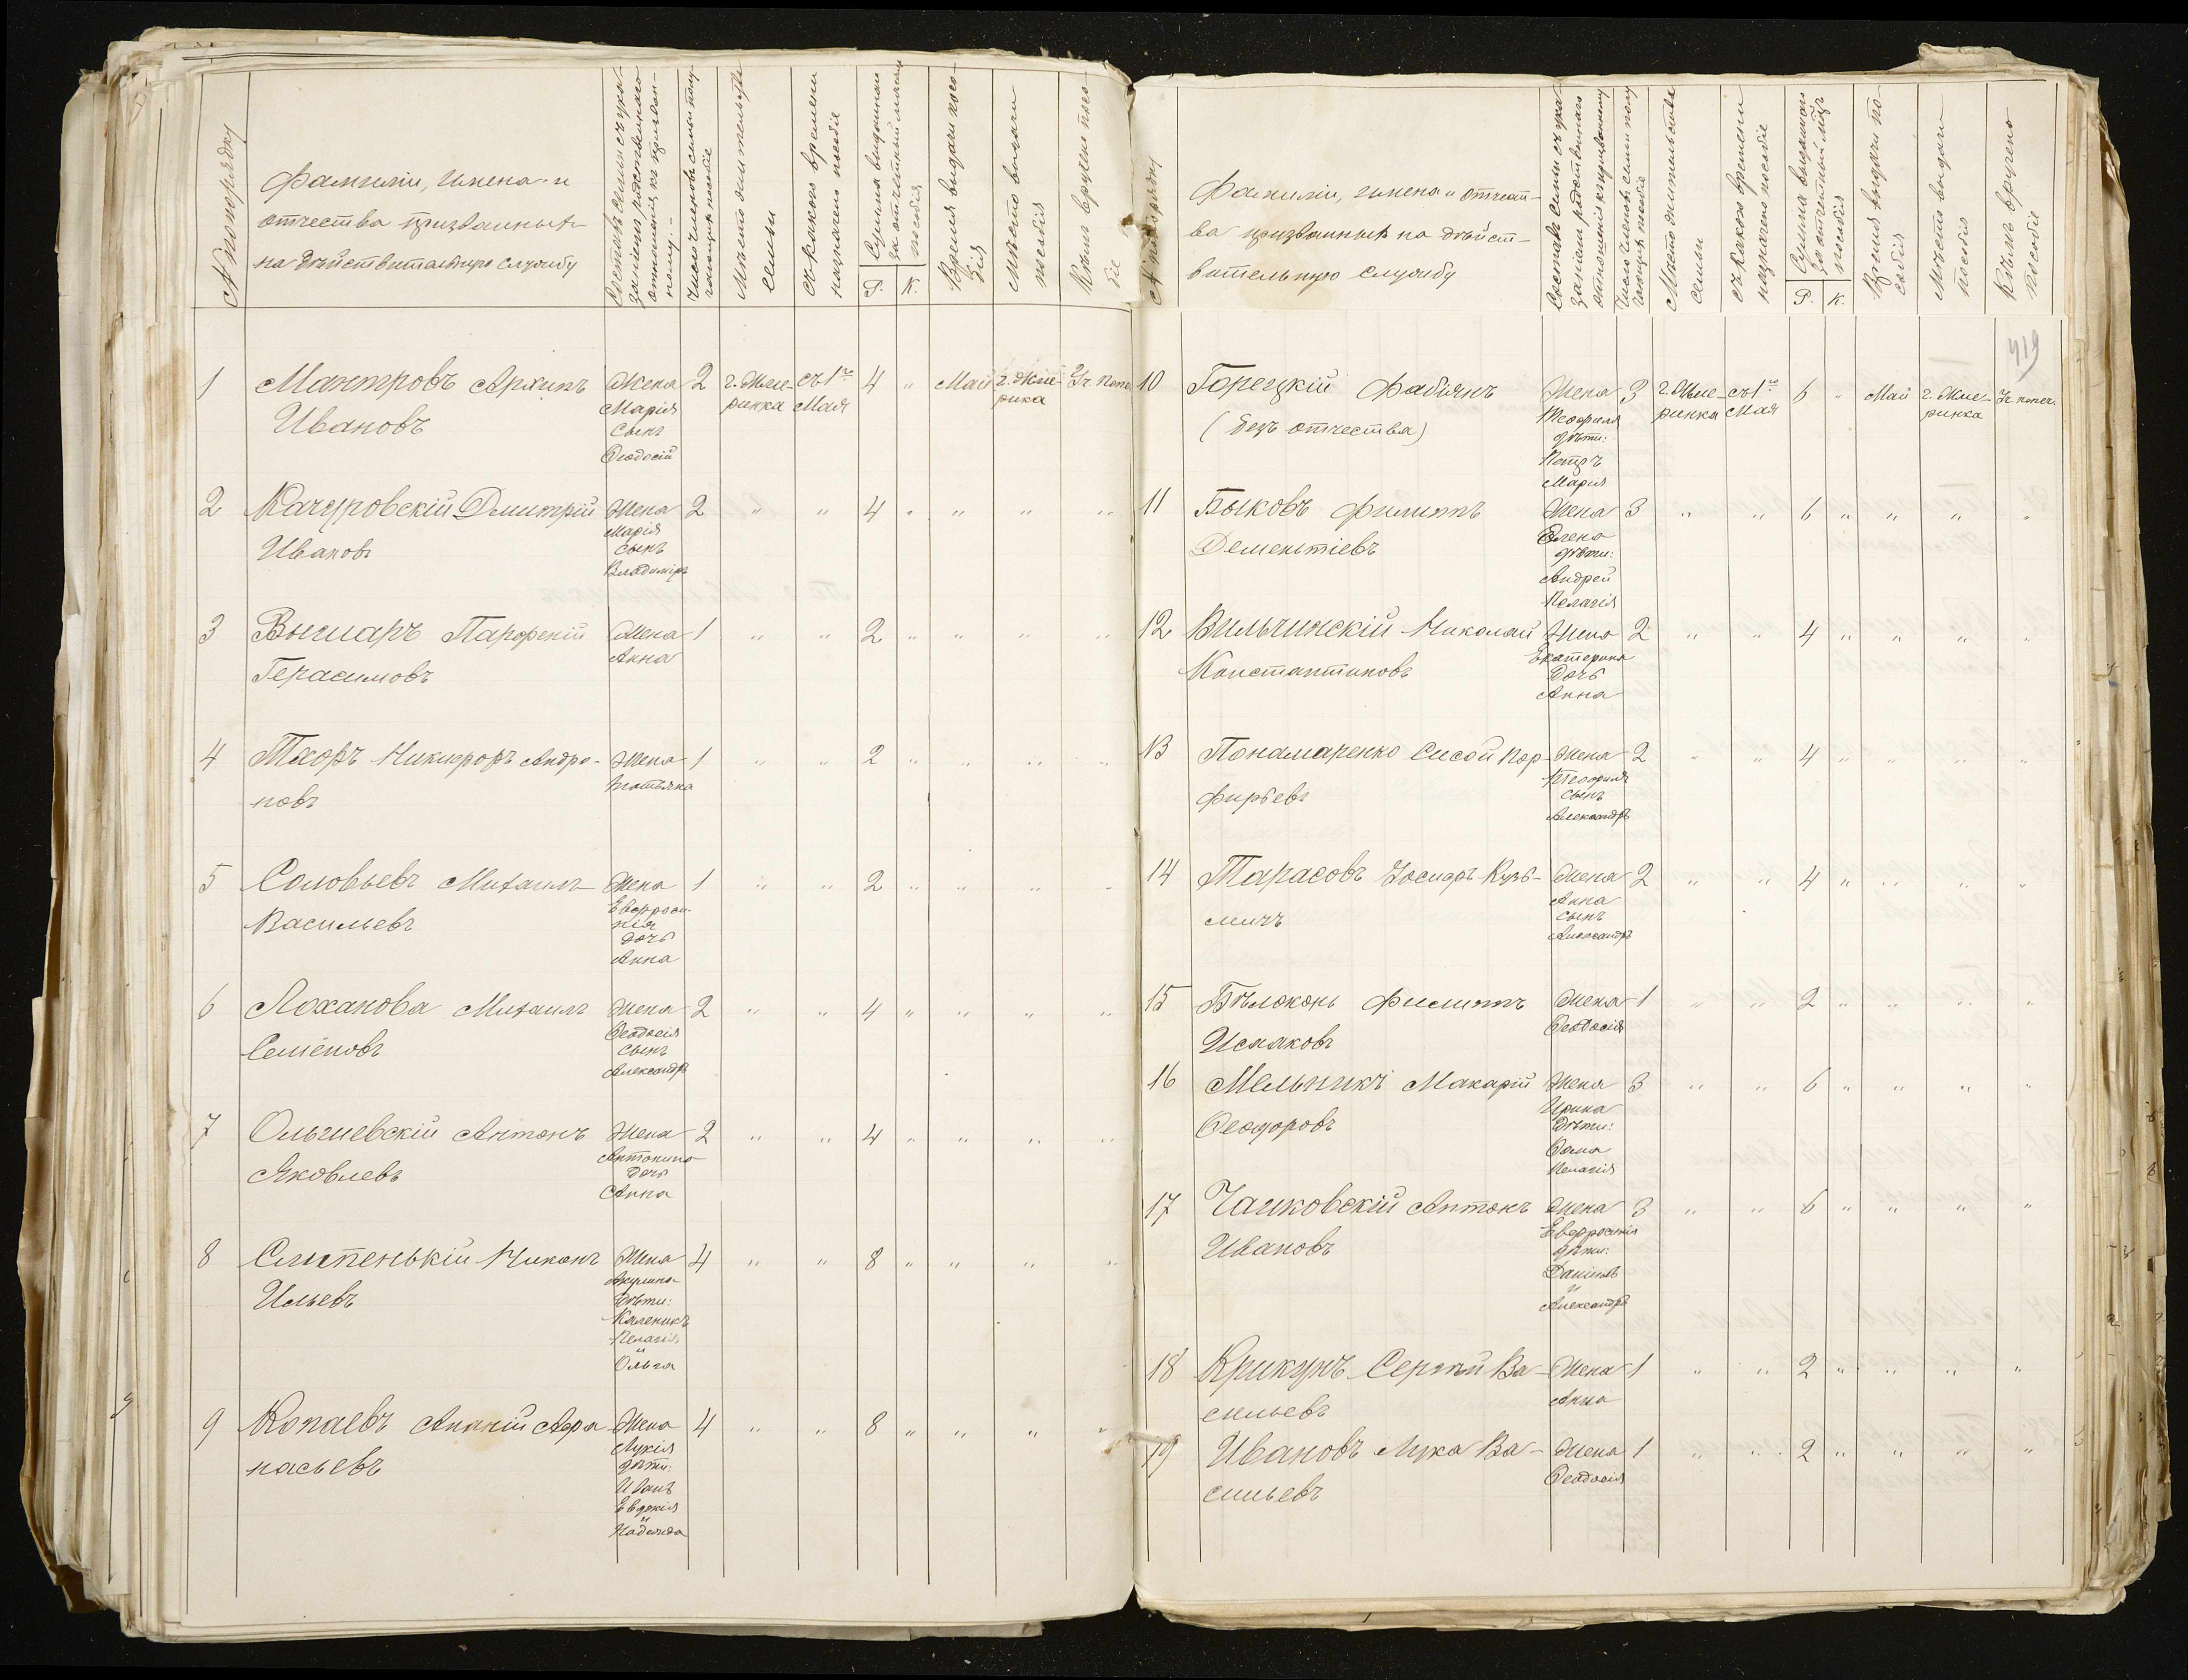 № по порядку
Фамиліи, имена и
отчества призванныхъ
на дѣйствительную службу
Составъ семьи съ указаніемъ родственнаго отношенія къ призванному.
Число членовъ семьи получающихъ пособіе
Мѣсто жительства семьи
Съ какого времени назначено пособіе
Сумма выданнаго за отчетный мѣсяцъ пособія
Р. К.
Время выдачи пособія
Мѣсто выдачи пособія
Кѣмъ вручено пособіе
1 Мантровъ Архипъ Жена 2 г. Жме- съ 1го 4 " Май г. Жме- Уч. попеч.
Ивановъ Марія ринка Мая ринка
Сынъ
Ѳеодосій
2 Качуровскій Дмитрій Жена 2 " " 4 " " " "
Ивановъ Марія
сынъ
Владиміръ
3 Выгмаръ Парфеній Жена 1 " " 2 " " " "
Герасимовъ Анна
4 Тхоръ Никифоръ Андро- Жена 1 " " 2 " " " "
новъ Татьяна
5 Соловьевъ Михаилъ Жена 1 " " 2 " " " "
Васильевъ Евфроси-
нія
дочь
Анна
6 Лоханова Михаилъ Жена 2 " " 4 " " " "
Семёновъ Ѳеодосія
сынъ
Александръ
7 Ольшевскій Антонъ Жена 2 " " 4 " " " "
Яковлевъ Антонина
дочь
Анна
8 Слипенькій Никонъ Жена 4 " " 8 " " " "
Ильевъ Акулина
Дѣти:
Каленикъ
Пелагія
и
Ольга
9 Копаевъ Ананій Афа- Жена 4 " " 8 " " " "
насьевъ Лукія
дѣти:
Иванъ
Евдокія
и
Надежда
№ по порядку
Фамиліи, имена и отчест-
ва призванныхъ на дѣйст-
вительную службу
Составъ семьи съ указаніемъ родственнаго отношенія къ призванному
Число членовъ семьи получающихъ пособіе
Мѣсто жительства семьи
съ какого времени назначено пособіе
Сумма выданнаго за отчетный мѣсяцъ пособія
Р. К.
Время выдачи пособія
Мѣсто выдачи пособія
Кѣмъ вручено пособіе
419
10 Горецкій Фабіянъ Жена 3 г. Жме- съ 1го 6 " Май г. Жме- Уч. попеч.
(безъ отчества) Теофиля ринка Мая ринка
дѣти:
Петръ
Марія
11 Быковъ Филиппъ Жена 3 " " 6 " " " "
Дементіевъ Елена
дѣти:
Андрей
Пелагія
12 Вильчинскій Николай Жена 2 " " 4 " " " "
Константиновъ Екатерина
Дочь
Анна
13 Понамаренко Сисой Пор- Жена 2 " " 4 " " " "
фирьевъ Теофиля
сынъ
Александръ
14 Тарасовъ Іосифъ Кузь- Жена 2 " " 4 " " " "
мичъ Анна
сынъ
Александръ
15 Бѣлоконь Филиппъ Жена 1 " " 2 " " " "
Исааковъ Ѳеодосія
16 Мельникъ Макарій Жена 3 " " 6 " " " "
Ѳеодоровъ Ирина
Дѣти:
Ѳома
Пелагія
17 Чайковскій Антонъ Жена 3 " " 6 " " " "
Ивановъ Евфросинія
дѣти:
Даніилъ
и
Александръ
18 Крикунъ Сергѣй Ва- Жена 1 " " 2 " " " "
сильевъ Анна
19 Ивановъ Лука Ва- Жена 1 " " 2 " " " "
сильевъ Ѳеодосія